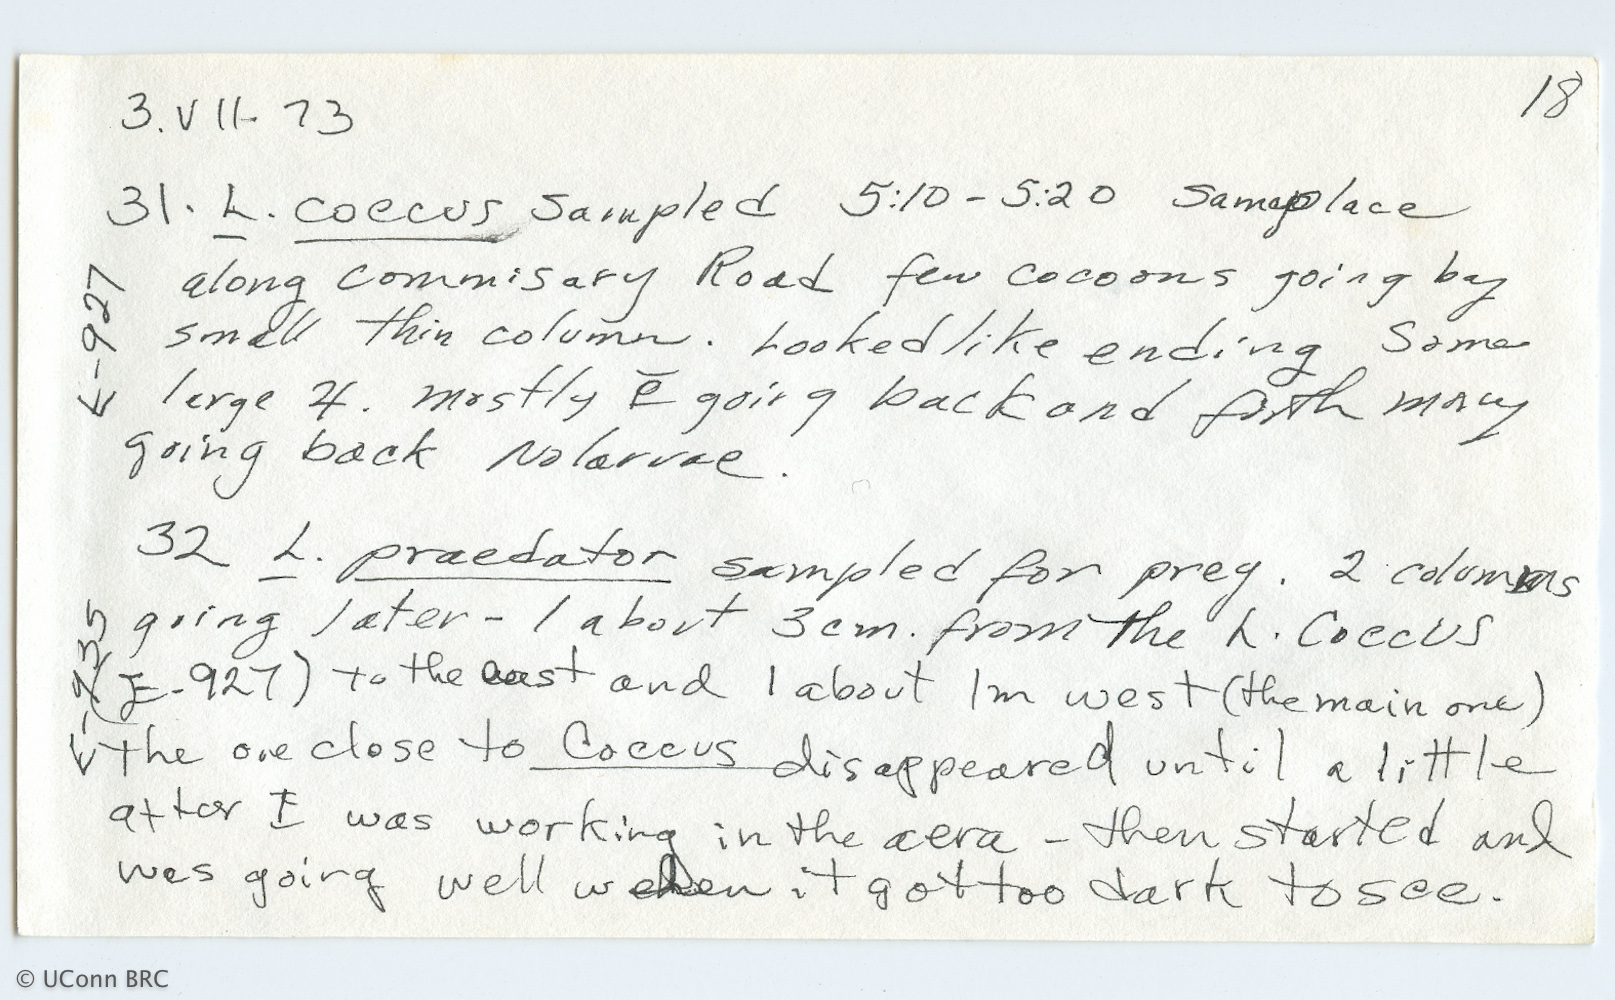 18
3.VII-73
31. L. coecus sampled 5:10-5:20 same place
along commisary Road few cocoons going by
small thin column. Looked like ending Some
large ♃. mostly ē going back and forth many
going back No larvae.
←-927
32 L. praedator sampled for prey. 2 columns
going later - 1 about 3cm. from the L. Coecus
(E-927) to the east and 1 about 1m west (the main one)
the one close to Coecus disappeared until a little
after I was working in the aera - then started and
was going well when it got too dark to see.
←-935
© UConn BRC